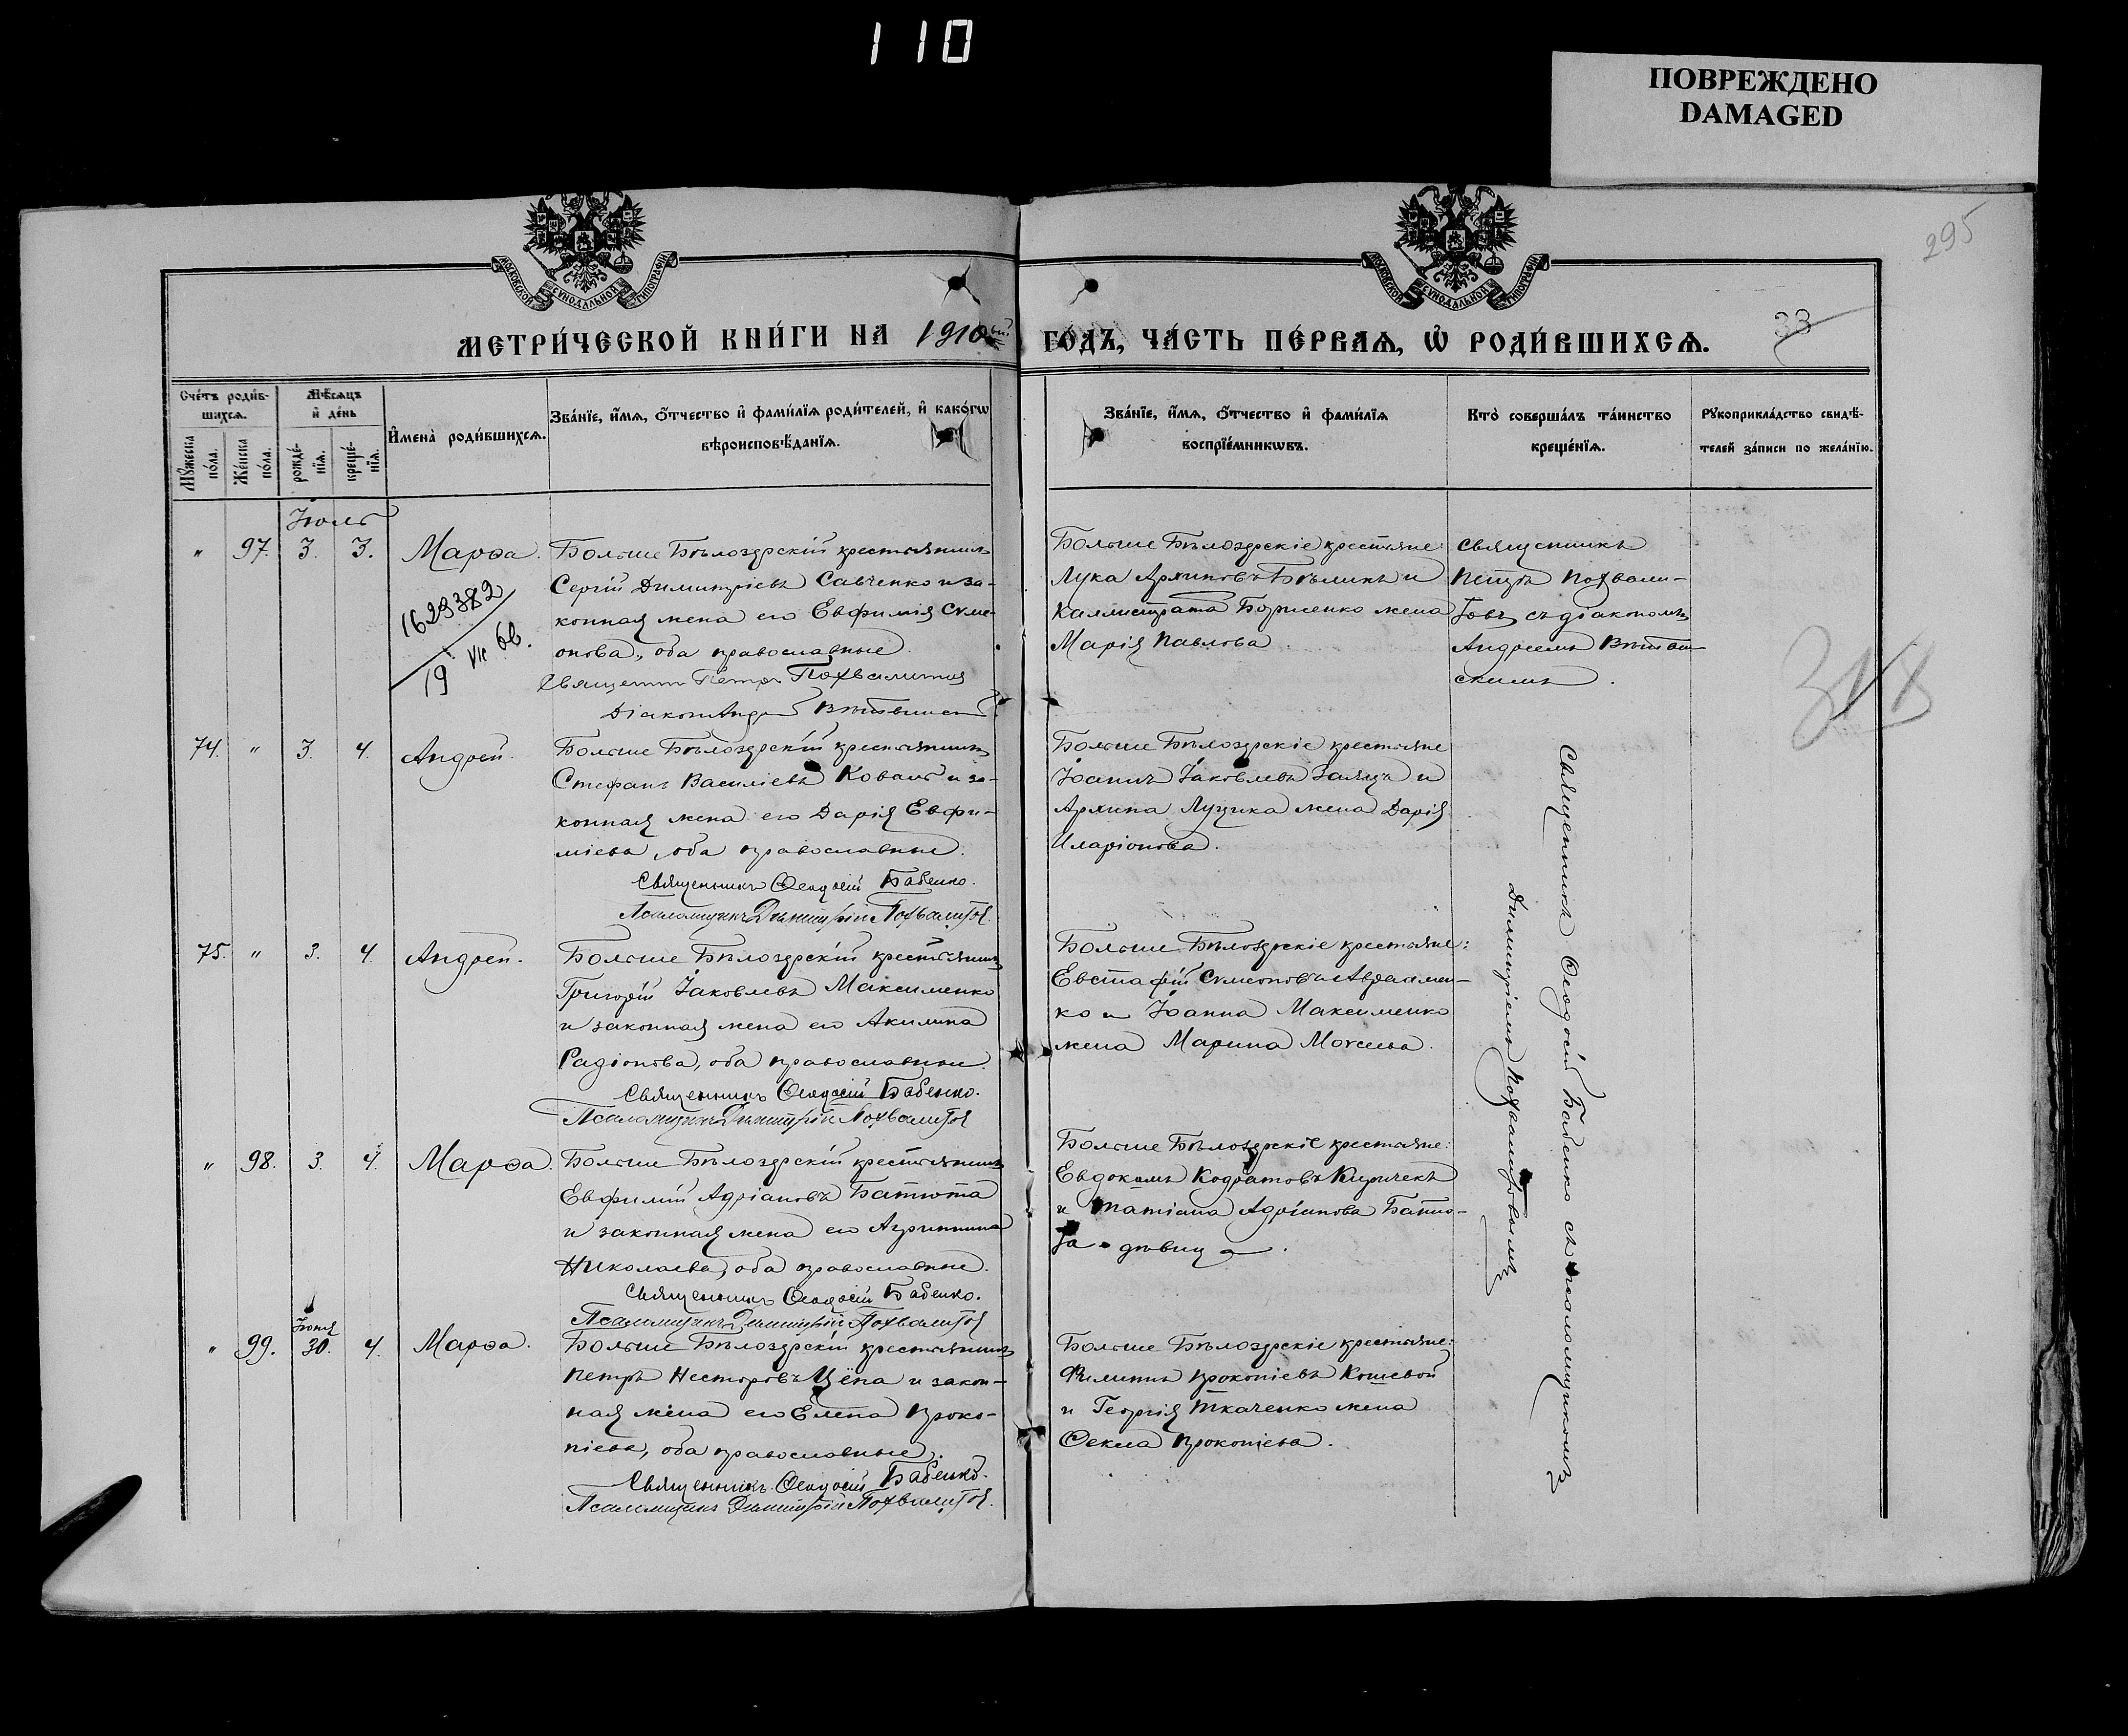 110
ПОВРЕЖДЕНО
DAMAGED
295
МОСКОВСКОЙ СУНОДАЛЬНОЙ ТИПОГРАФІИ
МОСКОВСКОЙ СУНОДАЛЬНОЙ ТИПОГРАФІИ
МЕТРИ́ЧЕСКОЙ КНИ́ГИ НА 1910ый ГО́ДЪ, ЧА́СТЬ ПЕ́РВАѦ, Ѡ҆ РОДИ́ВШИХСѦ.
33
Сче́тъ роди́в-
шихсѧ.
Мѣ́сѧцъ
и҆ де́нь
Мꙋ́жеска
по́ла.
Же́нска
по́ла.
рожде́-
нїѧ.
креще́-
нїѧ.
И҆мена̀ роди́вшихсѧ.
Зва́нїе, и҆́мѧ, ѻ҆́тчество и҆ фами́лїѧ роди́телей, и҆ како́гѡ
вѣроисповѣ́данїѧ.
Зва́нїе, и҆́мѧ, ѻ҆́тчество и҆ фами́лїѧ
воспрїе́мникѡвъ.
Кто̀ соверша́лъ та́инство
креще́нїѧ.
Рꙋкоприкла́дство свидѣ́-
телей за́писи по жела́нїю.
Іюль
" 97. 3. 3. Марѳа.
1629382
19 VII 66.
Больше Бѣлозерскій крестьянинъ
Сергій Димитріевъ Савченко и за-
конная жена его Евфимія Сѵме-
онова, оба православные.
Священник Петръ Похвалитов
Діаконъ Андрей
Больше Бѣлозерскіе крестьяне
Лука Архиповъ Бѣликъ и
Каллистрата Борисенко жена
Марія Павлова.
Священникъ
Петръ Похвали-
товъ съ діакономъ
Андреемъ
скимъ.
313
74. " 3. 4. Андрей.
Больше Бѣлозерскій крестьянинъ
Стефанъ Василіевъ Коваль и за-
конная жена его Дарія Евфи-
міева, оба православные.
Священникъ Ѳеодосій Бабенко.
Псаломщикъ Димитрій Похвалитов.
Больше Бѣлозерскіе крестьяне
Іоаннъ Іаковлевъ Заяцъ и
Архипа Луцика жена Дарія
Иларіонова.
75. " 3. 4. Андрей.
Больше Бѣлозерскій крестьянинъ
Григорій Іаковлевъ Максименко
и законная жена его Акилина
Радіонова, оба православные.
Священникъ Ѳеодосій Бабенко.
Псаломщикъ Димитрій Похвалитов
Больше Бѣлозерскіе крестьяне:
Евстафій Сѵмеоновъ Авраамен-
ко и Іоанна Максименко
жена Марина Моѵсеева.
" 98. 3. 4. Марѳа.
Больше Бѣлозерскій крестьянинъ
Евфимій Адріановъ Батюта
и законная жена его Агриппина
Николаева, оба православные.
Священникъ Ѳеодосій Бабенко.
Псаломщикъ Димитрій Похвалитов
Больше Бѣлозерскіе крестьяне:
Евдокимъ Кодратовъ Киричекъ
и Татіана Адріанова Батю-
та дѣвица.
Іюня
" 99. 30. 4. Марѳа.
Больше Бѣлозерскій крестьянинъ
Петръ Несторовъ Цёпа и закон-
ная жена его Елена Проко-
піева, оба православные.
Священникъ Ѳеодосій Бабенко.
Псаломщикъ Димитрій Похвалитов.
Больше Бѣлозерскіе крестьяне:
Филиппъ Прокопіевъ Кошевой
и Георгія Ткаченко жена
Ѳекла Прокопіева.
Священникъ Ѳеодосій Бабенко съ псаломщикомъ
Димитріемъ Похвалитовымъ